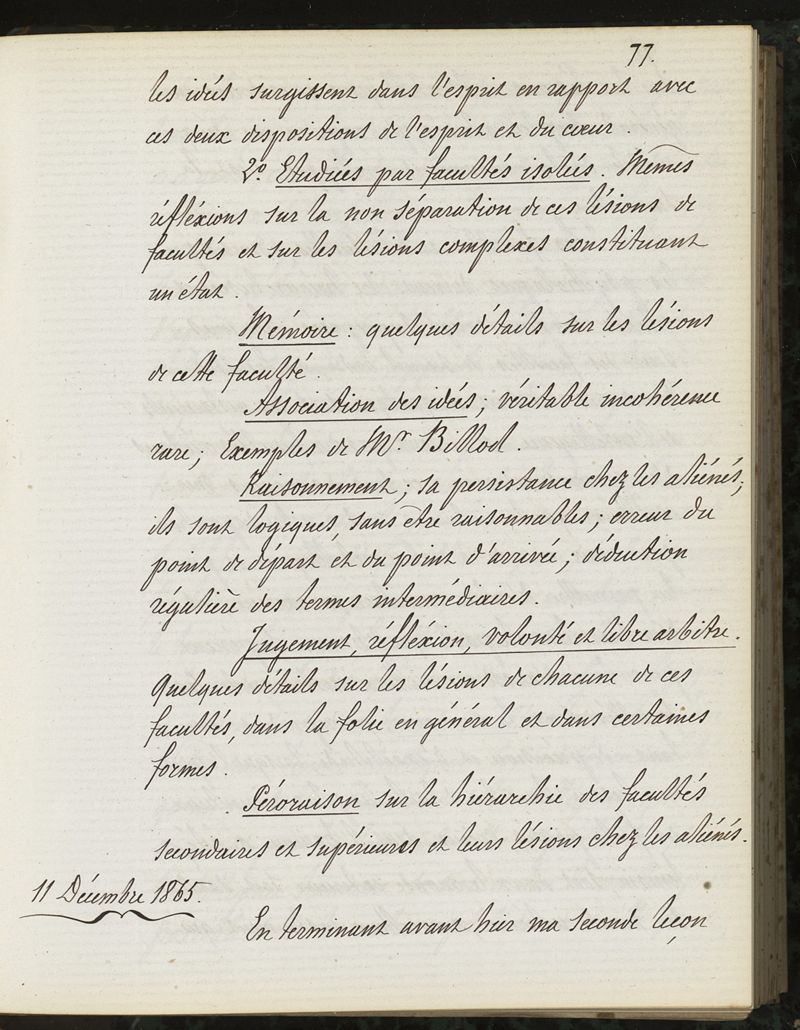 77.
les idées surgissent dans l'esprit en rapport avec
ces deux dispositions de l'esprit et du cœur.
2º. Etudiées par facultés isolées. Mêmes
réfléxions sur la non séparation de ces lésions de
facultés et sur les lésions complexes constituant
un état.
Mémoire : quelques détails sur les lésions
de cette faculté.
Association des idées ; véritable incohérence
rare ; Exemples de Mr. Billod.
Raisonnement ; sa persistance chez les aliénés ;
ils sont logiques, sans être raisonnables ; erreur du
point de départ et du point d'arrivée ; déduction
régulière des termes intermédiaires.
Jugement, réfléxion, volonté et libre arbitre.
Quelques détails sur les lésions de chacune de ces
facultés, dans la folie en général et dans certaines
formes.
Péroraison sur la hiérarchie des facultés
secondaires et supérieures et leurs lésions chez les aliénés.
11 Décembre 1865.
En terminant avant hier ma seconde leçon